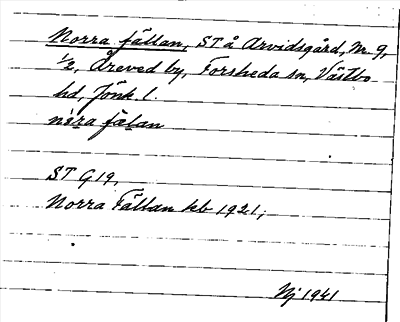 Norra fällan, ST å Arvidsgård, nr 9,
1/2, Åreved by, Forsheda sn, Västbo
hd, Jönk. l.
nora fälan
ST G19,
Norra Fällan kb 1921,
Nj 1941